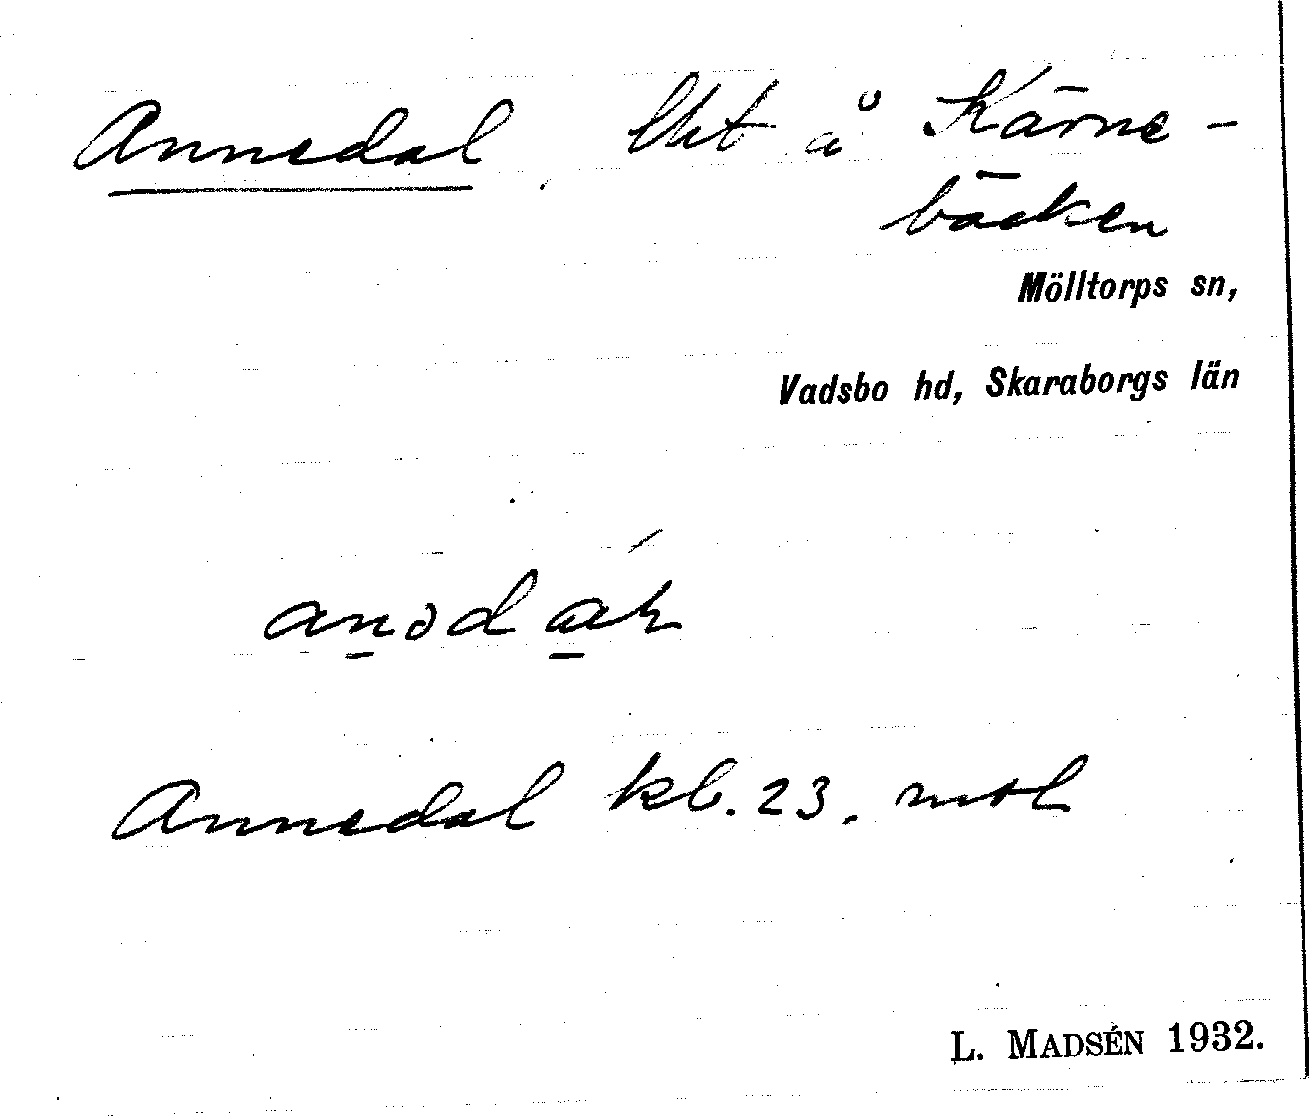 Annedal, lht å Kärne-
bäcken
Mölltorps sn,
Vadsbo hd, Skaraborgs län
Annedal kb. 23. mtl
L. MADSÉN 1932.